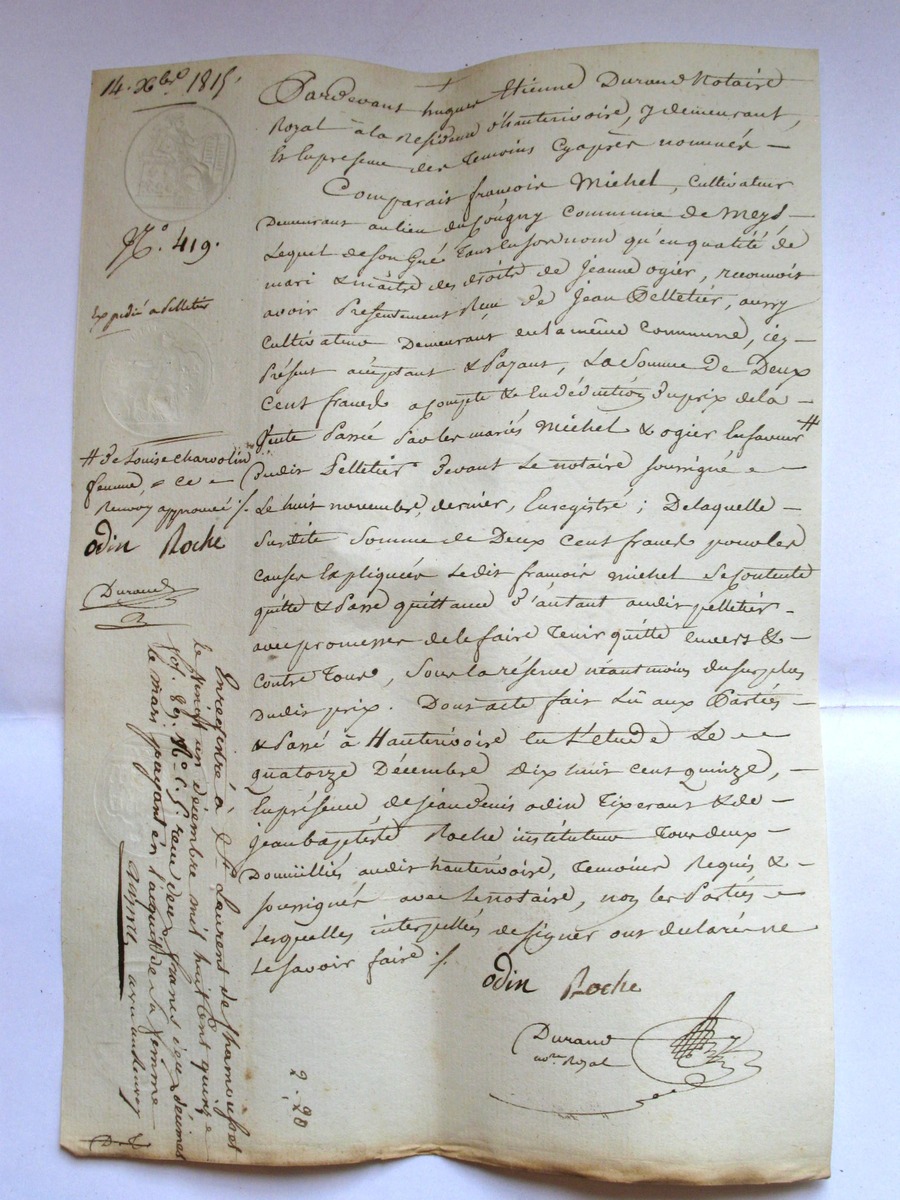 14. Xbre 1815.
N.° 419.
Expedié a Pelletier
# de Louise charvolin
femme, = ce =
Renvoy approuvé ./.
odin Roche
Durand
Pardevant hugues Etienne Durand Notaire
Royal à la Résidence d'hauterivoire, y demeurant,
Et En présence des Temoins Cyaprès nommés —
Comparait françois Michel, Cultivateur
Demeurant au lieu du Cougny Commune de Meys —
Lequel de son Gré Tant En son nom qu'en qualité de
mari & maitre des droits de Jeanne ogier, reconnoit
avoir Présentement Reçu de Jean Pelletier, aussy
Cultivateur Demeurant en la même Commune, icy
Présent acceptant & Payant, La Somme de Deux
Cent francs a compte & En déduction du prix de la —
Vente Passé Par les mariés Michel & ogier En faveur #
dudit Pelletier devant Le notaire soussigné =
Le huit novembre, dernier, Enregistré; De laquelle —
Susdite Somme de Deux Cent francs pour les
Causes Expliquées Ledit françois michel Se Contente
quitte & Passe quittance d'autant audit pelletier —
avec promesses de le faire Tenir quitte envers & —
Contre Tous, Sous la réserve néantmoins du surplus
Dudit prix. Dont acte fait Lû aux Parties —
& Passé à Hauterivoire En L'etude Le —
quatorze Décembre dix huit cent quinze, —
En présence de Jean denis odin Tixerant & de —
Jean baptiste Roche instituteur Tous deux —
Domiciliés audit hauterivoire, Temoins Requis & —
soussignés avec Le notaire, non les Parties =
Lesquelles interpellées de signer ont déclaré ne
Le savoir faire ./.
odin Roche
Durand
nore Royal
Enregistré à St. Laurent de Chamousset
le vingt un décembre mil huit cent quinze
vol. 89. N° 5. reçu deux francs vingt décimes
le mari payant en l'acquit de la femme
2 . 20